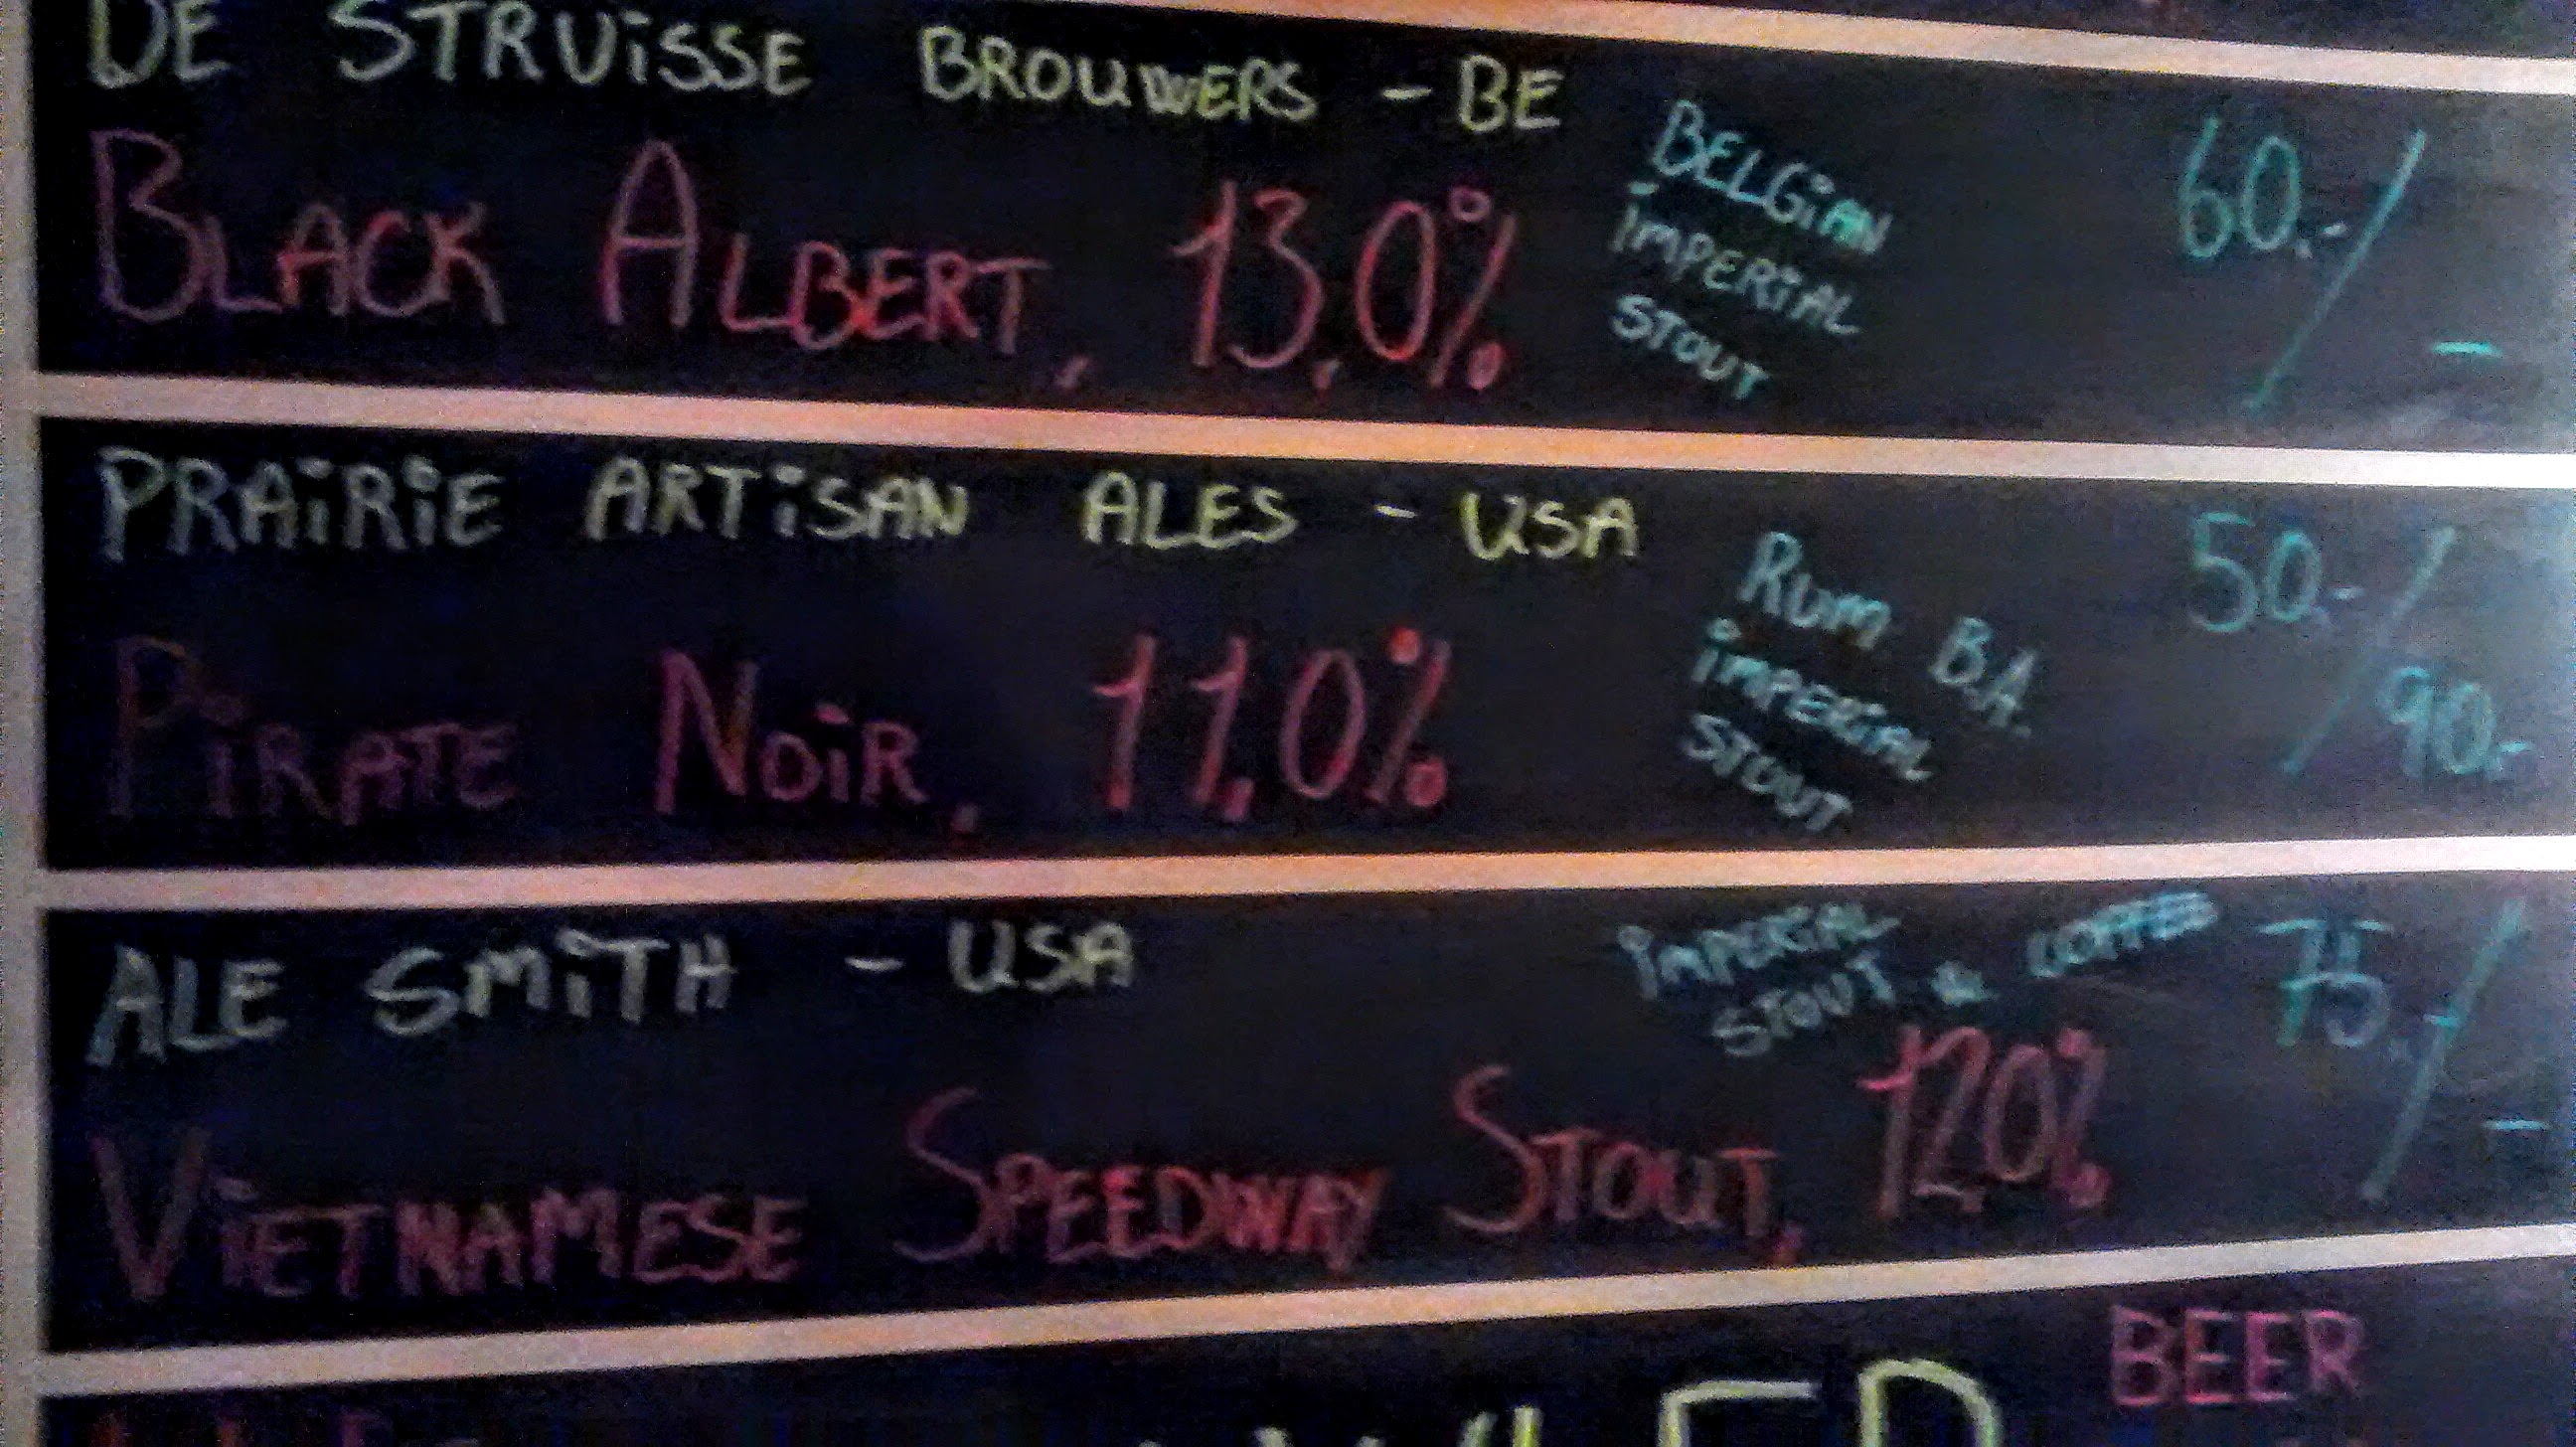 DE STRUiSSE BROUWERS - BE
BLACK ALBERT, 13,0%
BELGiAN
iMPERiAL
STOUT
60,-/-
PRAiRiE ARTiSAN ALES - USA
PiRATE NOiR, 11,0%
RUM B.A.
iMPERiAL
STOUT
50,-/90,-
ALE SMiTH - USA
iMPERiAL
STOUT & COFFEE
75,-/-
ViETNAMESE SPEEDWAY STOUT, 12,0%
BEER